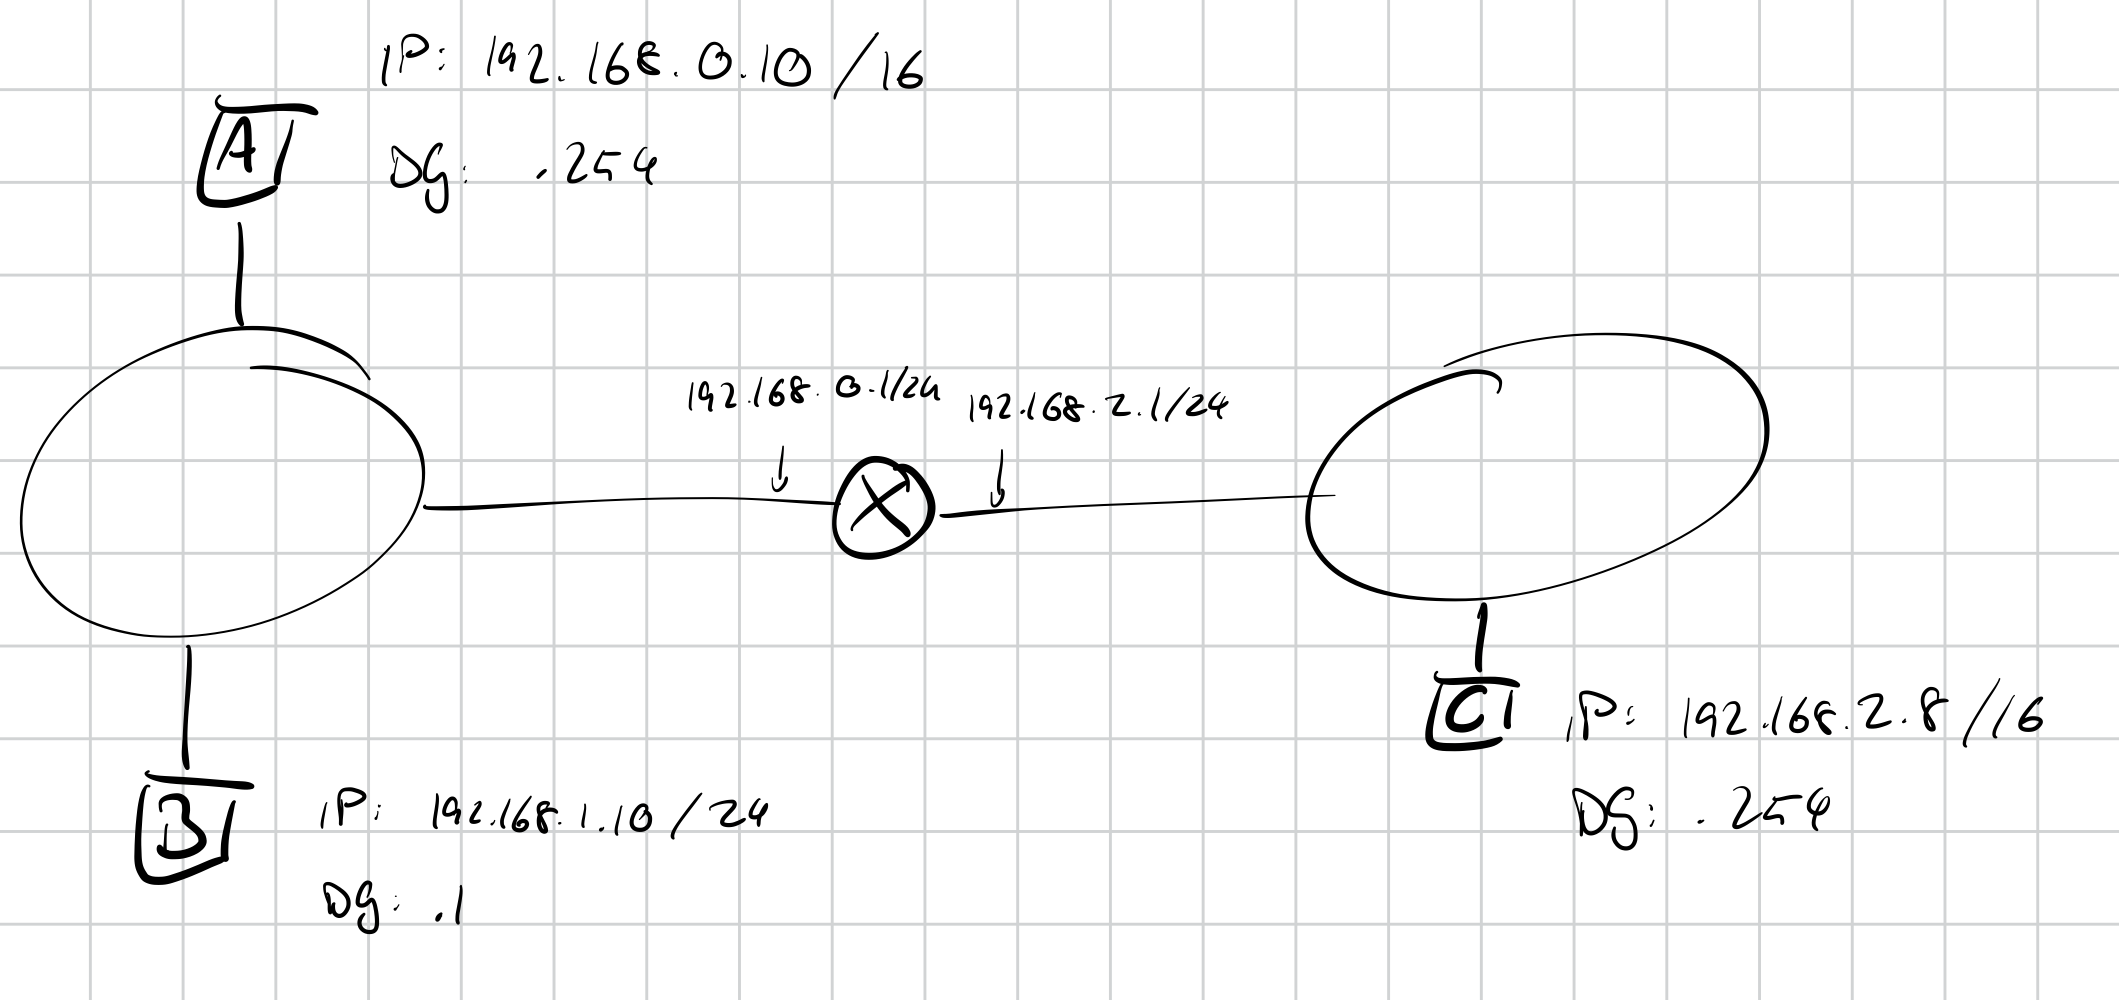 IP: 192.168.0.10/16
A
DG: .254
192.168.0.1/24
192.168.2.1/24
C
IP: 192.168.2.8/16
DG: .254
B
IP: 192.168.1.10/24
DG: .1